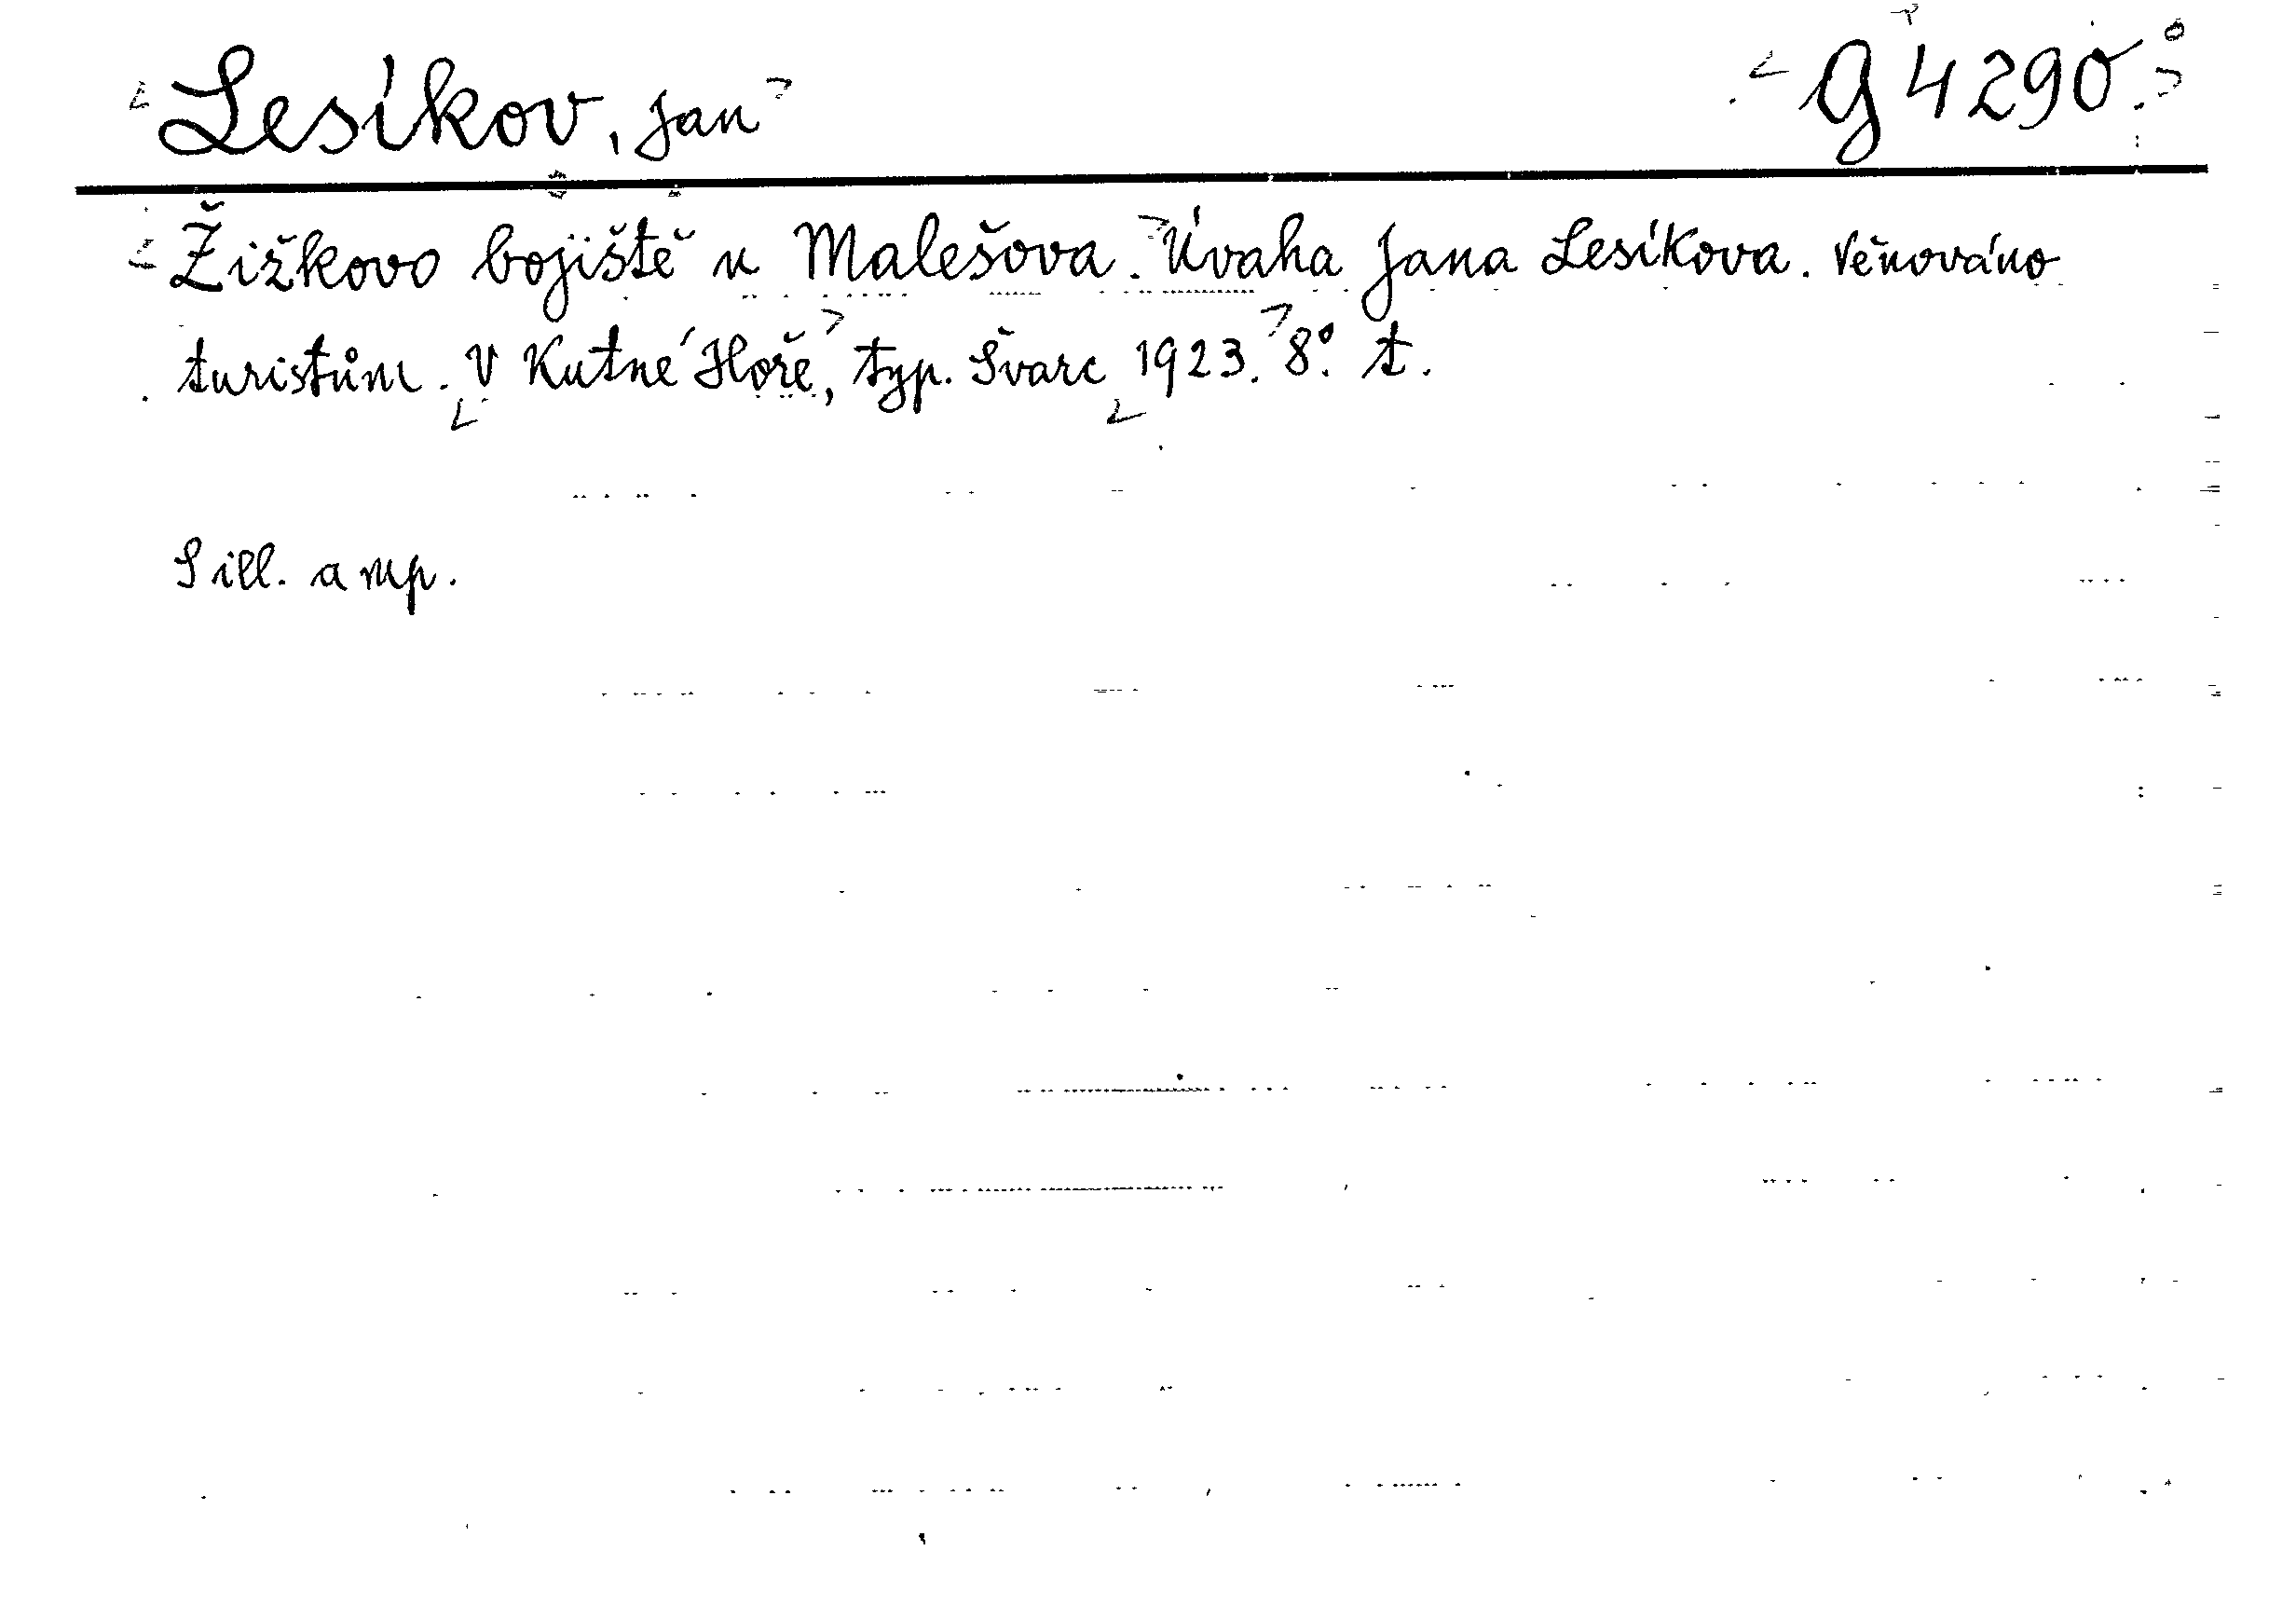 Lesíkov, Jan
g 4290.
Žižkovo bojiště u Malešova. Úvaha Jana Lesíkova. Věnováno
turistům. V Kutné Hoře, typ. Švarc 1923. 8°. t.
S ill. a mp.